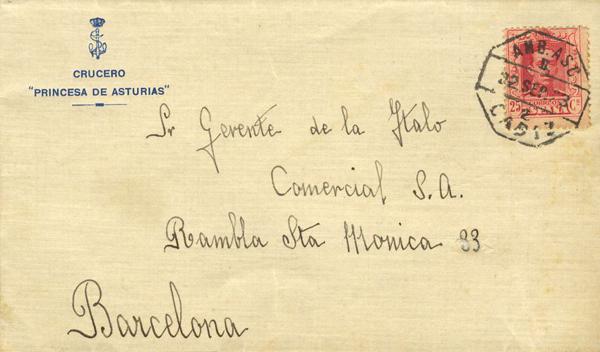 CRUCERO
"PRINCESA DE ASTURIAS"
AMB. ASC
22 SEP
2
CADIZ
25 Cs
CORREOS
Sr Gerente de la Italo
Comercial S.A.
Rambla Sta Monica 33
Barcelona